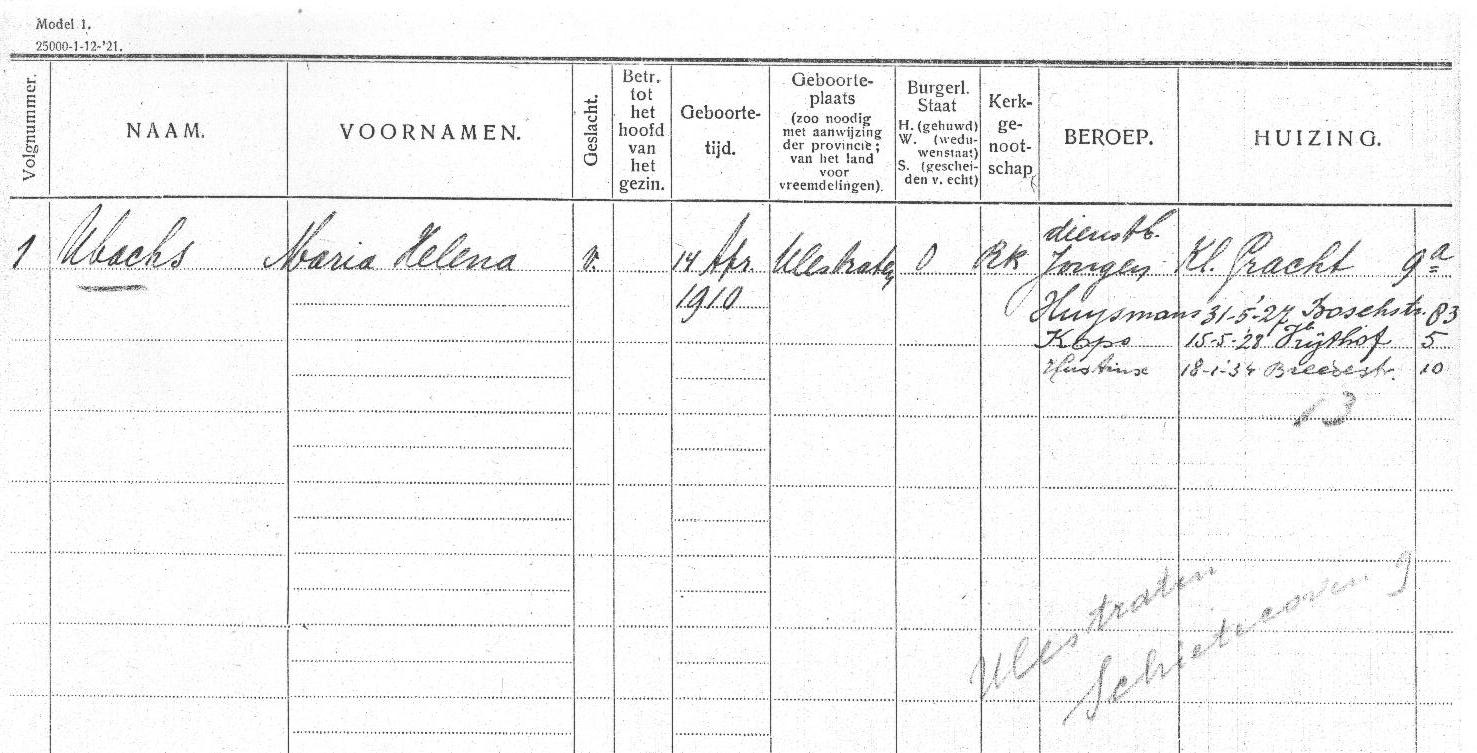 Model 1.
25000-1-12-'21.
Volgnummer.
NAAM.
VOORNAMEN.
Geslacht.
Betr.
tot
het
hoofd
van
het
gezin.
Geboorte-
tijd.
Geboorte-
plaats
(zoo noodig
met aanwijzing
der provincie;
van het land
voor
vreemdelingen).
Burgerl.
Staat
H. (gehuwd)
W. (wedu-
wenstaat)
S. (geschei-
den v. echt)
Kerk-
ge-
noot-
schap
BEROEP.
HUIZING.
dienstb.
1 Ubachs Maria Helena v. 14 Apr. Ulestraten O RK Jongen Kl. Gracht 9a
1910 Huysmans 31-5-'27 Boschstr. 83
Kops 15-5-'28 Vrijthof 5
Hustinx 18-1-'34 Breedestr. 10
13
Ulestraten
Schietecoven 9